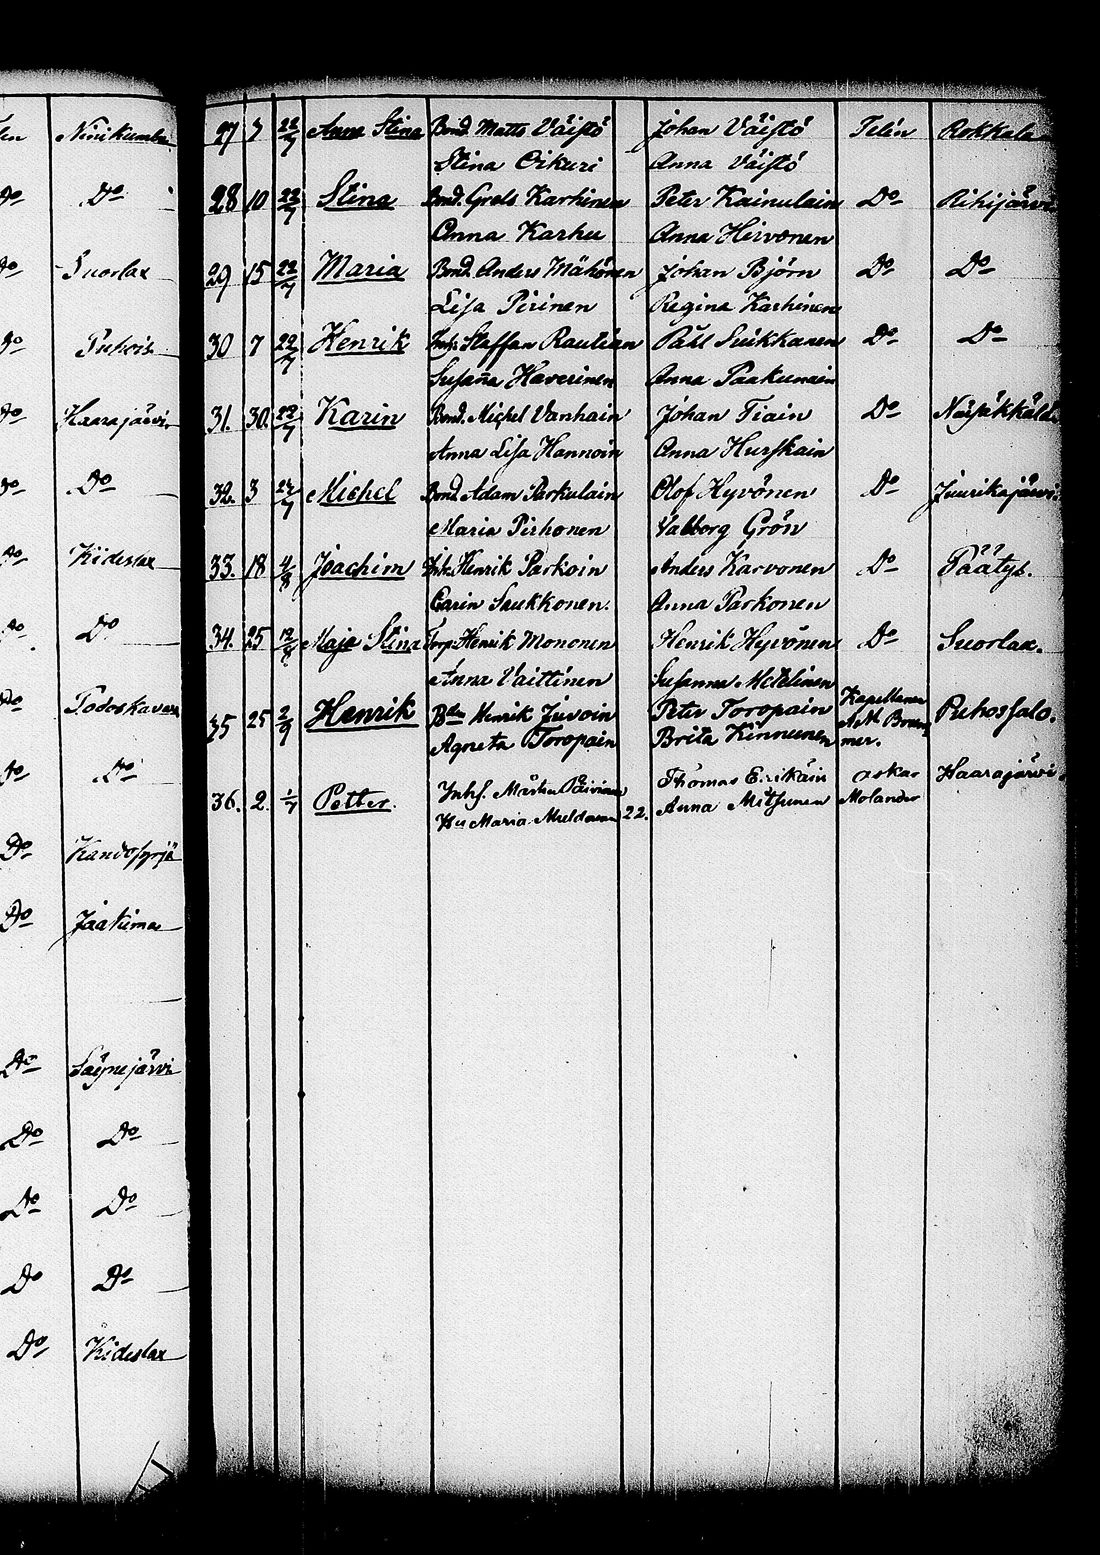 Niinikumbu
Do Do
Do Suorlax
Do Puhois
Do Haarajärvi
Do Do
Do Kiideslax
Do Do
Do Podoskavara
Do Do
Do
Do Jaakima
Do Säynejärvi
Do Do
Do Do
Do Do
Do Kideslax
27 3 22/7 Anna Stina Bond. Matts Väistö Johan Väistö Telén Rokkala
Stina Oikuri Anna Väistö
28 10 22/7 Stina Bond. Grels Karhinen Peter Kainulain Do Riihijärvi
Anna Karhu Anna Hirvonen
29 15 22/7 Maria Bond. Anders Mähönen Johan Björn Do Do
Lisa Pirinen Regina Karhinen
30 7 22/7 Henrik Inhs. Staffan Rautiain Påhl Suikkanen Do Do
Susaña Haverinen Anna Paakunain
31. 30. 22/7 Karin Bond. Michel Vanhain Johan Tiain Do
Anna Lisa Hannoin Anna Hurskain
32. 3 Michel Bond. Adam Parkulain Olof Hyvönen Do Juurikajärvi.
Maria Pirhonen Valborg Grön
33. 18 4/8 Joachim Inh. Henrik Parkoin Anders Karvonen Do Päätys.
Carin Saukkonen. Anna Parkonen
34. 25 Maja Stina Torp. Henrik Mononen Henrik Hyvönen Do Suorlax.
Anna Vaittinen Susanna Metelinen
35 25 2/9 Henrik Bdn Henrik Juvoin Peter Toropain Kapellanen Puhossalo.
Agneta Toropain Brita Kinnunen A.M. Brummer.
36. 2. 1/7 Petter. Inhs. Mårten Päivinen Thomas Erikäin askar Haarajärvi
Hu Maria Muldanen 22. Anna Mitsunen Molander